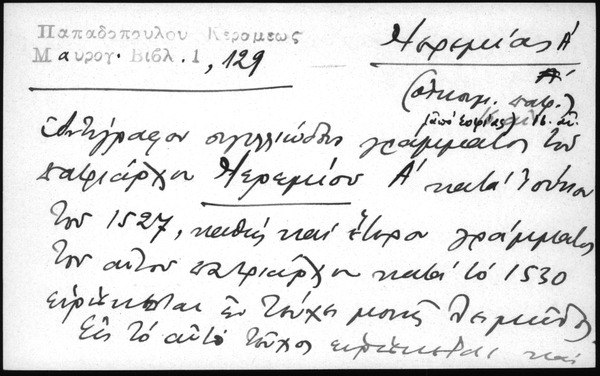 Παπαδοπουλου Κεραμεως
Μαυρογ. Βιβλ. 1, 129
Ἱερεμίας Α΄
(οἰκουμ. πατρ.)
(ἀπό Σοφίας) 16. αἰ.
Ἀντίγραφον σιγιλλιώδους γράμματος τοῦ
πατριάρχου Ἱερεμίου Α΄ κατά Ἰούνιον
τοῦ 1527, καθώς καί ἕτερον γράμματος
τοῦ αὐτοῦ πατριάρχου κατά τό 1530
εὑρίσκεται ἐν τεύχει μονῆς Λειμῶνος.
Εἰς τό αὐτό τεῦχος εὑρίσκεται καί